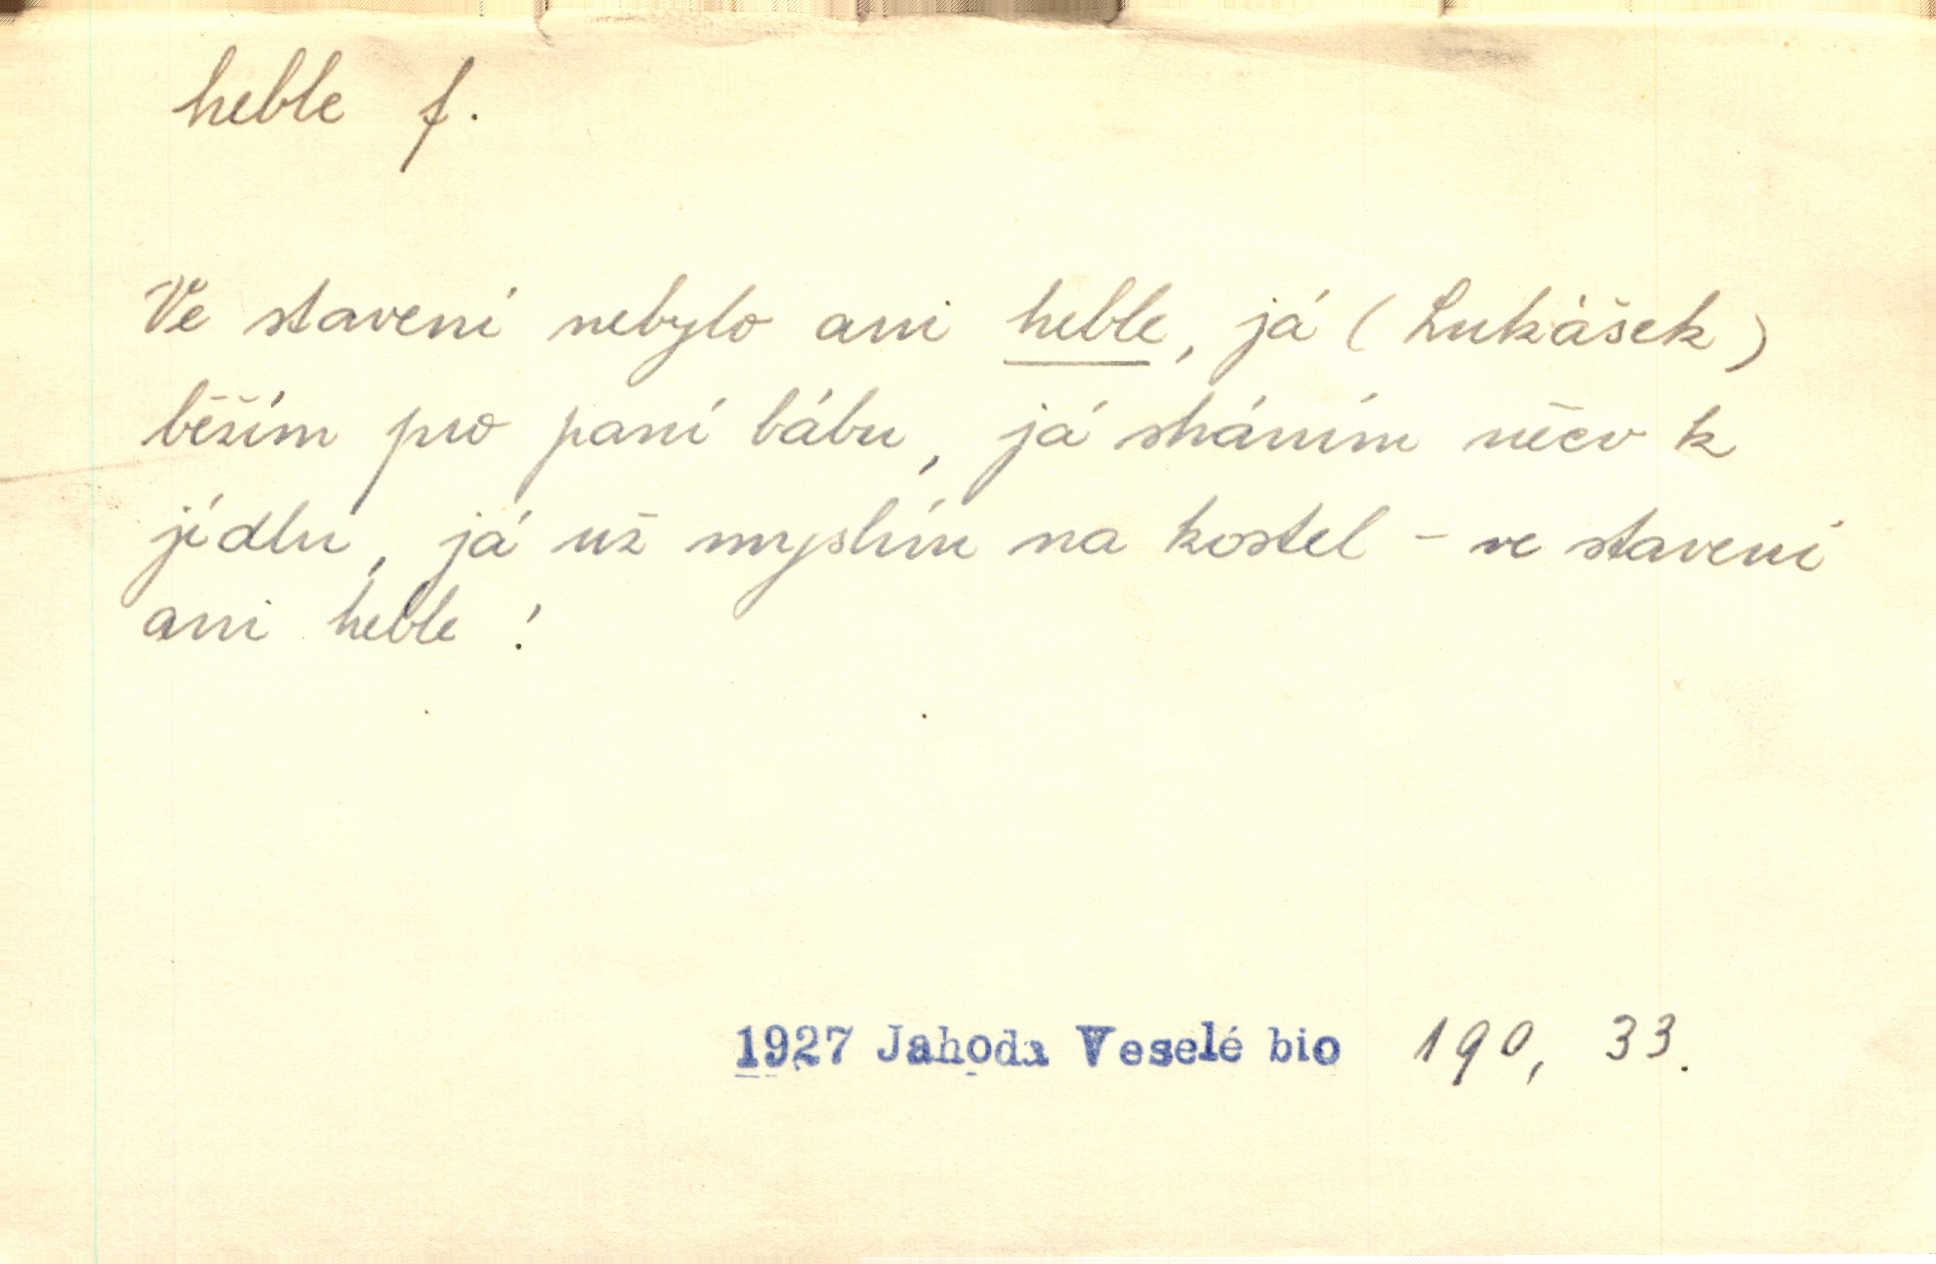 heble f.
Ve stavení nebylo ani heble, já (Lukášek)
běžím pro paní bábu, já sháním něco k
jídlu, já už myslím na kostel - ve stavení
ani heble!
1927 Jahoda Veselé bio 190, 33.